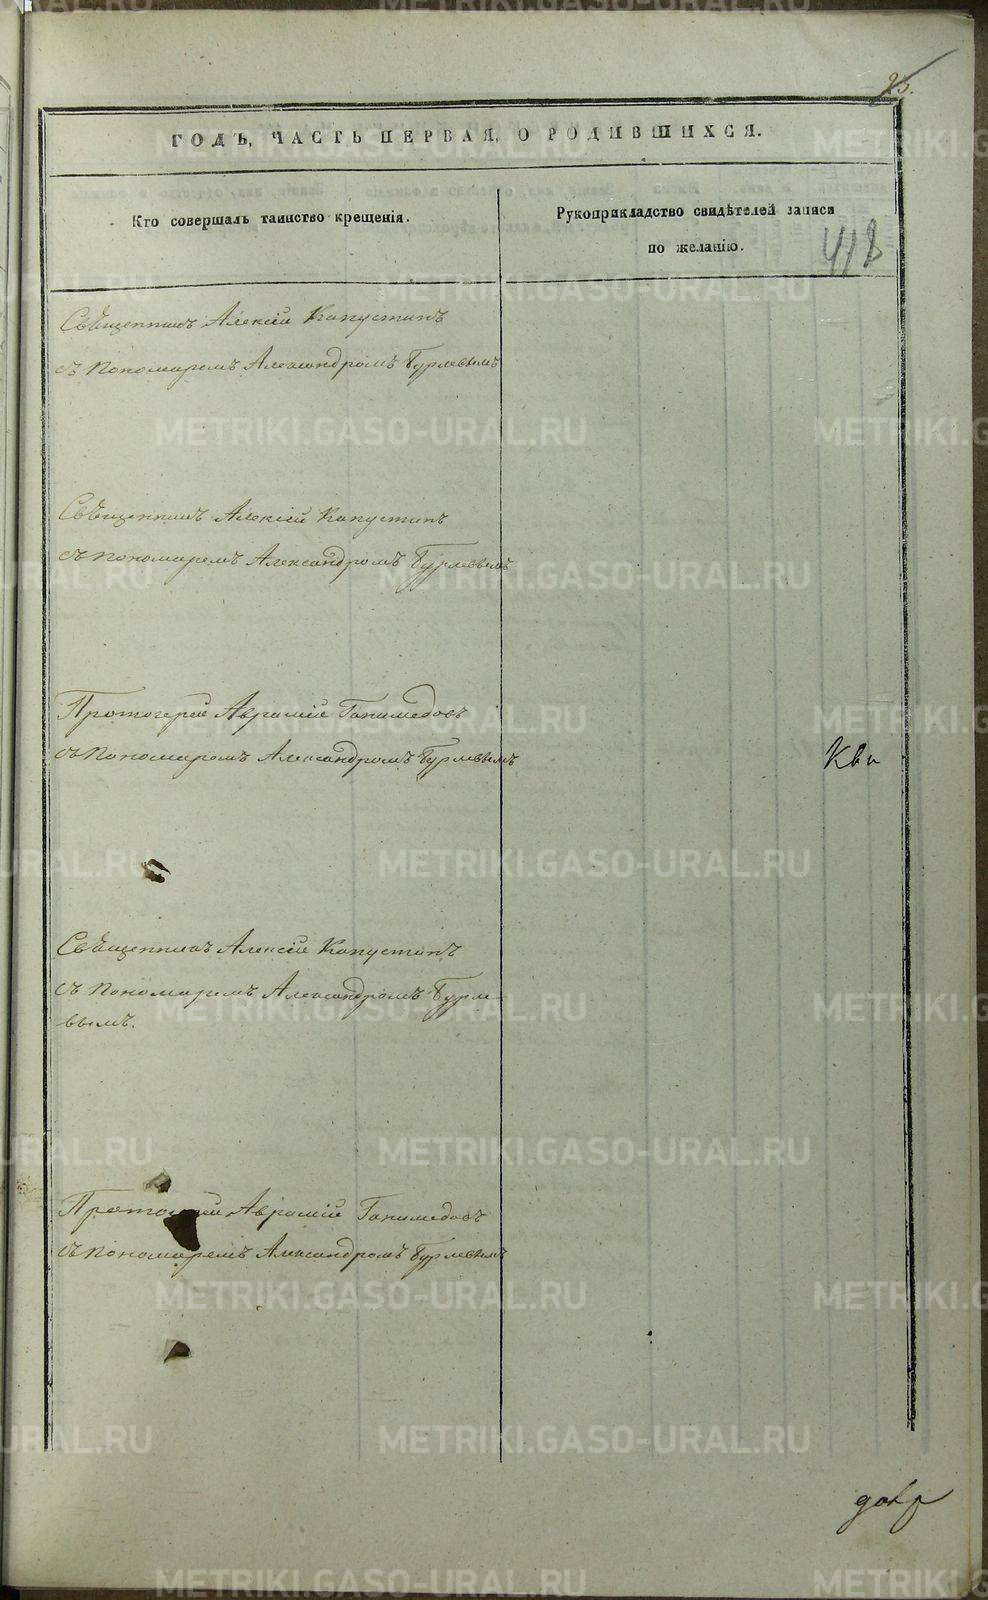 25.
ГОДЪ, ЧАСТЬ ПЕРВАЯ, О РОДИВШИХСЯ.
Кто совершалъ таинство крещенія.
Рукоприкладство свидѣтелей записи
по желанію.
418
Священникъ Алексій Капустинъ
съ Пономаремъ Александромъ Бурлевымъ
Священникъ Алексій Капустинъ
съ Пономаремъ Александромъ Бурлевымъ
Протоіерей Аврамій Ганимедовъ
съ Пономаремъ Александромъ Бурлевымъ
Священникъ Алексій Капустинъ
съ Пономаремъ Александромъ Бурле-
вымъ.
Протоіерей Аврамій Ганимедовъ
съ Пономаремъ Александромъ Бурлевымъ
METRIKI.GASO-URAL.RU